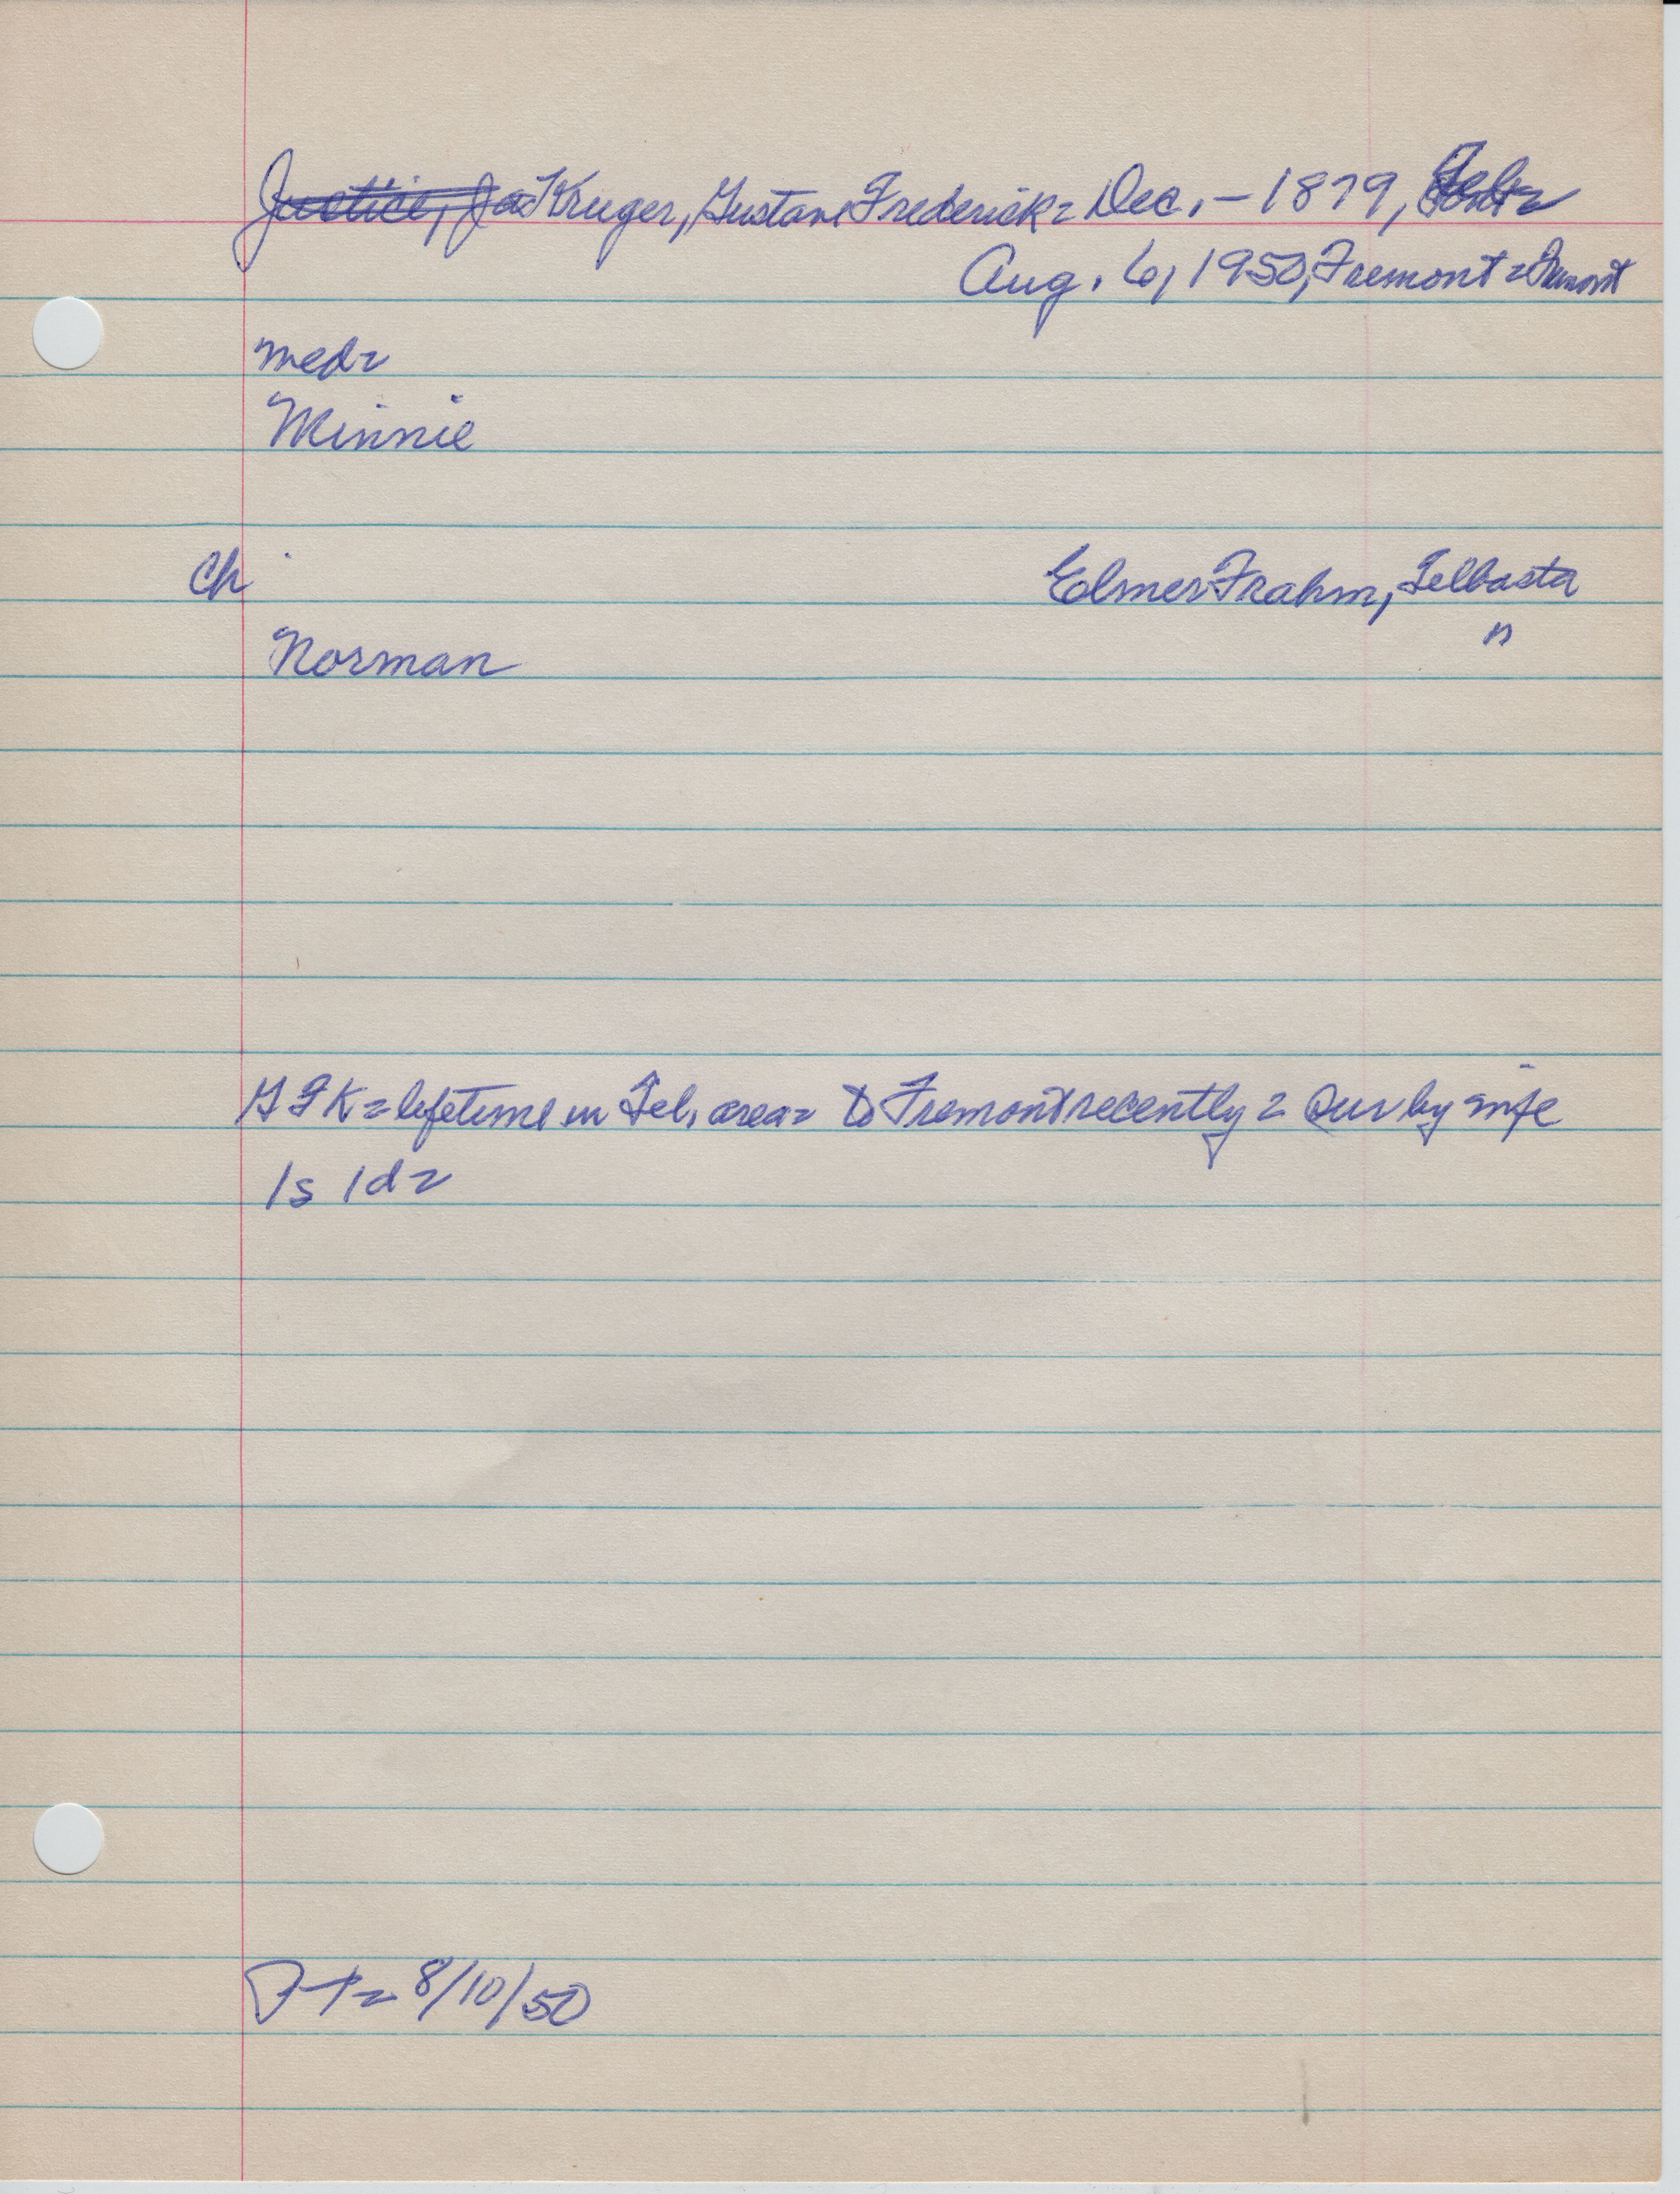 Kruger, Gustave Frederick = Dec. - 1879,
Aug. 6, 1950, Fremont = Fremont
med =
Minnie
Ch Elmer Frahm, Telbasta
"
Norman
G F K = lifetime in Tel. area = to Fremont recently = Sur by wife
1s 1d =
8/10/50